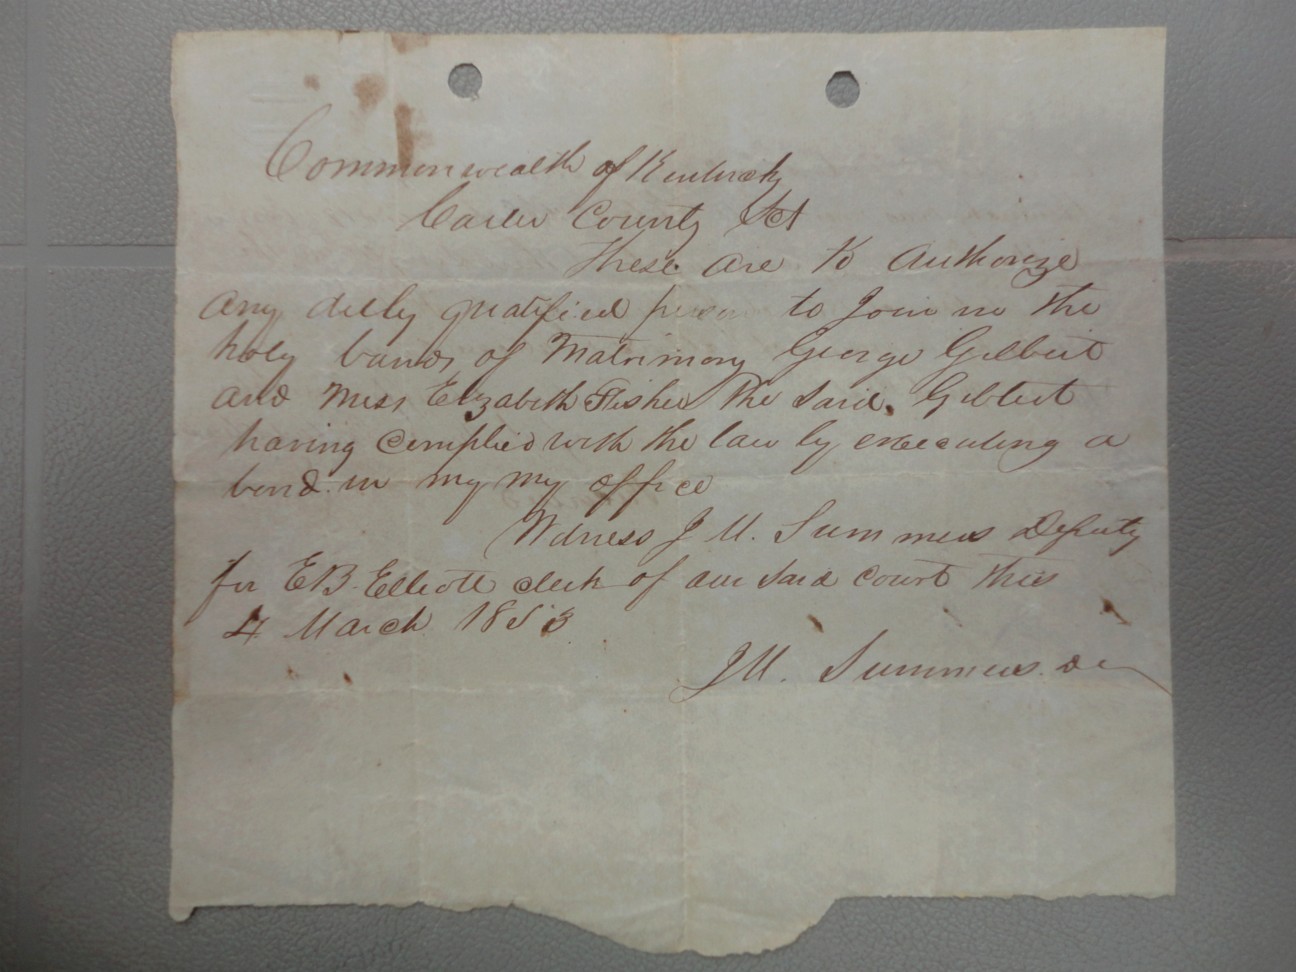 Commonwealth of Kentucky
Carter County Sct
These are to Authorize
any dully qualified person to Join in the
holy bands of Matrimony George Gilbert
and Miss Elizabeth Fisher the said. Gilbert
having complied with the law by executing a
bond in my my office
Witness J M. Summers Deputy
for E B. Elliott clerk of our said court this
4 March 1853
J M. Summers. D C